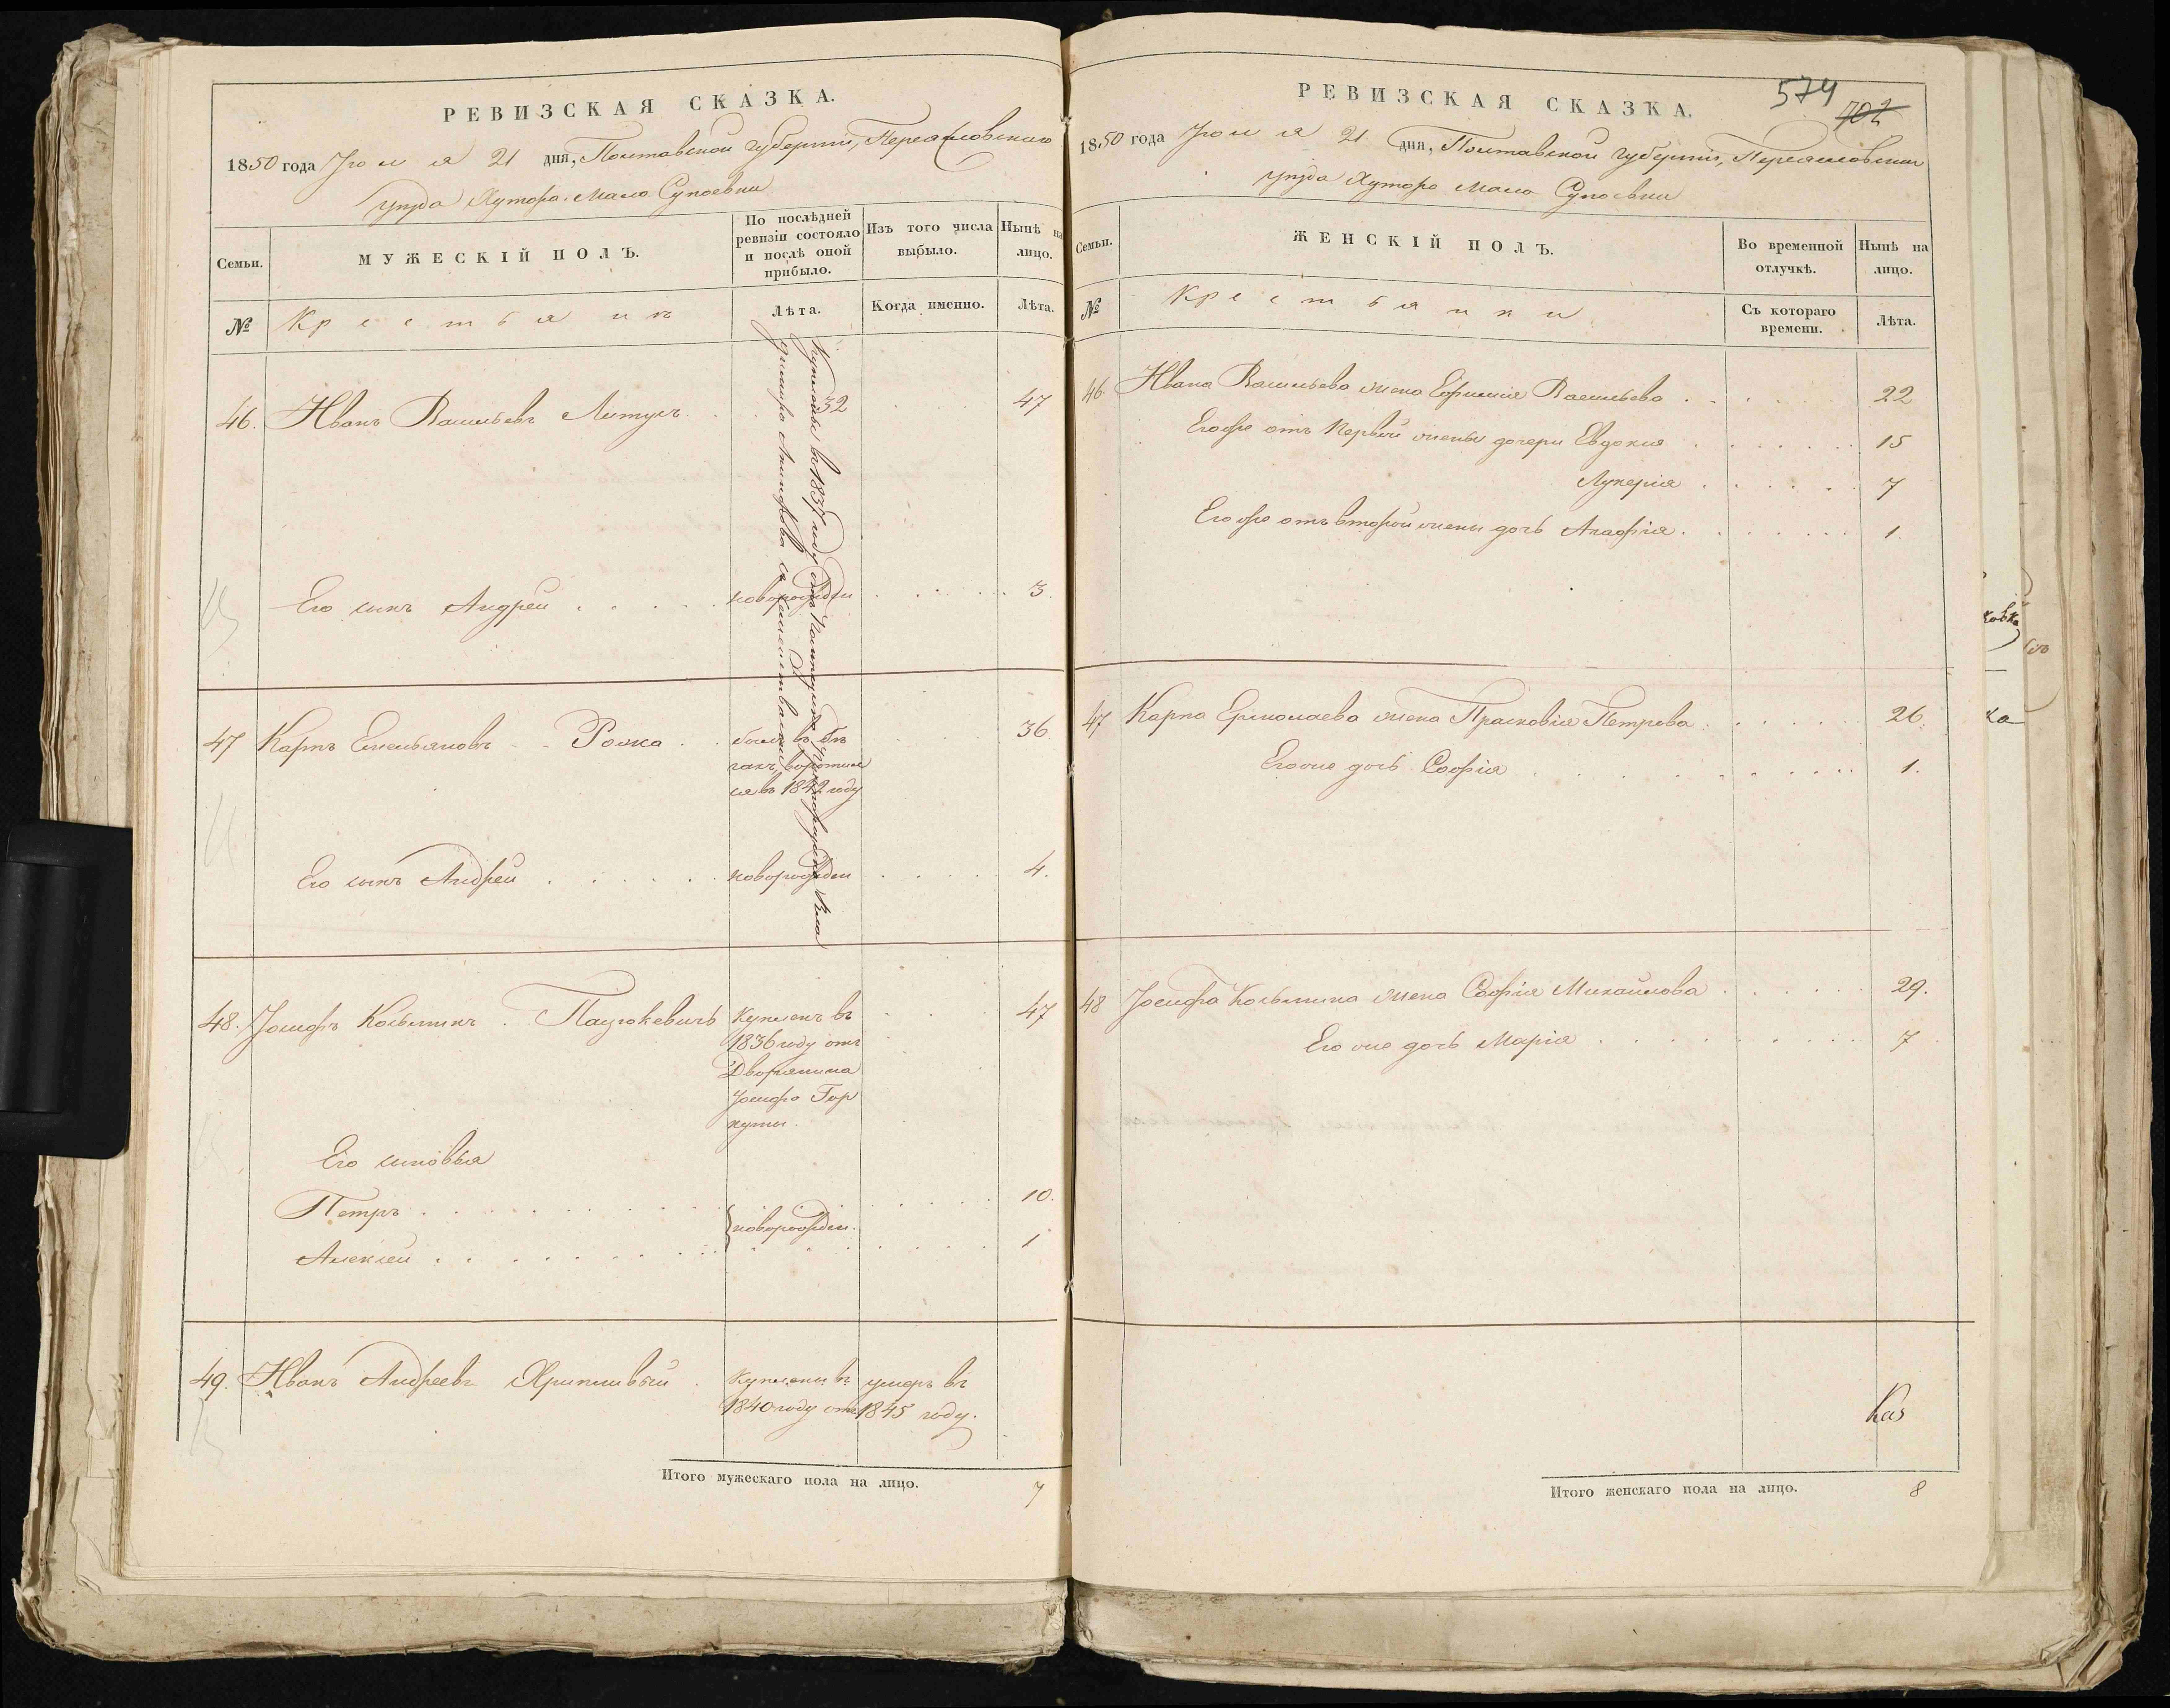 РЕВИЗСКАЯ СКАЗКА.
1850 года Іюля 21 дня, Полтавской Губерніи, Переяславского
уѣзда Хутора Мало Супоевки
Семьи. МУЖЕСКІЙ ПОЛЪ. По послѣдней ревизіи состояло и послѣ оной прибыло. Изъ того числа выбыло. Нынѣ на лицо.
№ Крестьянъ Лѣта. Когда именно. Лѣта.
46. Иванъ Васильевъ 32 47
Его сынъ Андрей новорожден 3.
Куплены въ 1837 году отъ
47 Карпъ Емельяновъ Рожка 36
былъ въ бѣ
гахъ, воротил
ся въ 1842 году
Его сынъ Андрей новорожден 4.
48. Іосифъ Косьминъ Пацукевичь Купленъ въ 47
1836 году отъ
Дворянина
Іосифа Гор
куши.
Его сыновья
Петръ 10.
новорожден.
Алексей 1
49. Иванъ Андреевъ Хрипливый Куплены въ умеръ въ
1840 году отъ 1845 году.
Итого мужескаго пола на лицо. 7
574
702
РЕВИЗСКАЯ СКАЗКА.
1850 года Іюля 21 дня, Полтавской Губерніи, Переяславского
уѣзда Хутора Мало Супоевки
Семьи. ЖЕНСКІЙ ПОЛЪ. Во временной отлучкѣ. Нынѣ на лицо.
№ Крестьянки Съ котораго времени. Лѣта.
46. Ивана Васильева жена Ефимія Васильева 22
Его же отъ Первой жены дочери Евдокия 15
Лукерія 7
Его же отъ второй жены дочь Агафія 1.
47 Карпа жена Прасковія Петрова 26.
Его же дочь Софія 1.
48 Іосифа Косьмина жена Софія Михайлова 29.
Его же дочь Марія 7
Каз
Итого женскаго пола на лицо. 8